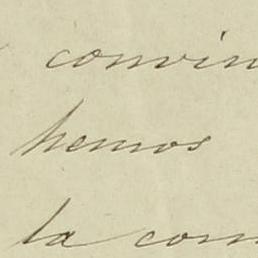 convin
hemos
la com